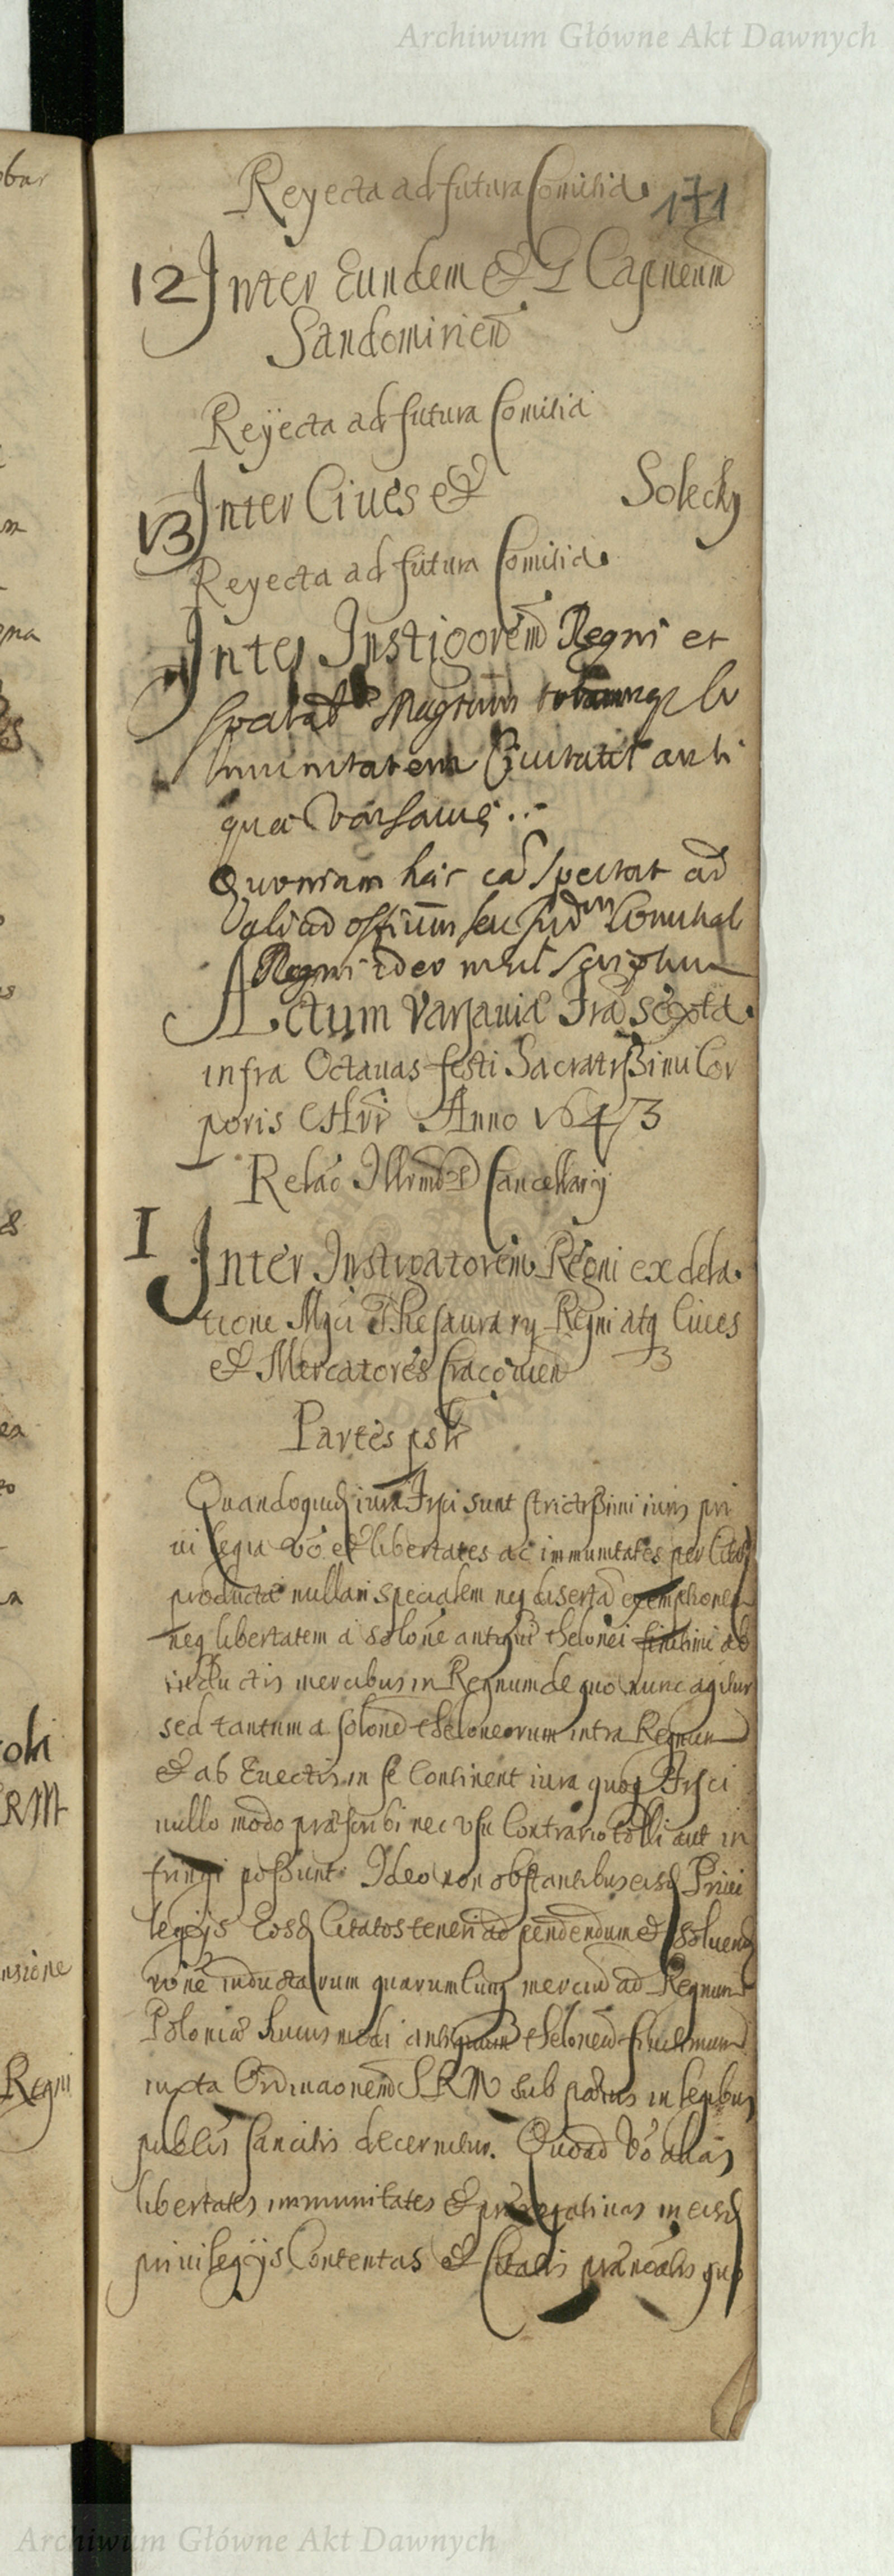 Archiwum Główne Akt Dawnych
Reyecta ad futura Comitia
171
12 Inter Eundem & G Capneum
Sandomirien
Reÿecta ad futura Comitia
13 Inter Ciues & Solecky
Reyecta ad futura Comitia
Inter Instigorem Regni et
Magrum
Ciuitatis anti
qua Varsauię
Quoniam haec ca spectat ad
seu Comitial
Regni ideo
Actum Varsauiæ fra sexta
infra Octauas festi Sacratissimi Cor
poris Chri Anno 1643
Relao Illrmi D Cancellarÿ
1 Inter Instigatorem Regni ex dela
tione Mgci Thesaurarÿ Regni atq Ciues
& Mercatores Cracouien
Partes pstes
Quandoquid iura Fisci sunt strictissimi iuris pri
uilegia vo et libertates ac immunitates per Citat
producta nullam specialem neq disertã exemptionem
neq libertatem a solone antiqui thelonei finitimi ab
inductis mercibus in Regnum de quo nunc agitur
sed tantum a solone theloneorum intra Regnum
& ab Euectis in se Continent iura quoq Fisci
nullo modo præscribi nec vsu Contrario tolli aut in
fringi possunt Ideo non obstantibus eisd Priui
legijs Eosd Citatos teneri ad pendendum & soluend
rone inductarum quarumcunq merciũ ad Regnum
Poloniæ huiusmodi antiquum theloneũ finitimum
iuxta Ordinaonem S R M sub pænis in legibus
publis sancitis decernitur. Quoad vo alias
libertates immunitates & prærogatiuas in eisd
priuilegijs Contentas & Citatis
Archiwum Główne Akt Dawnych